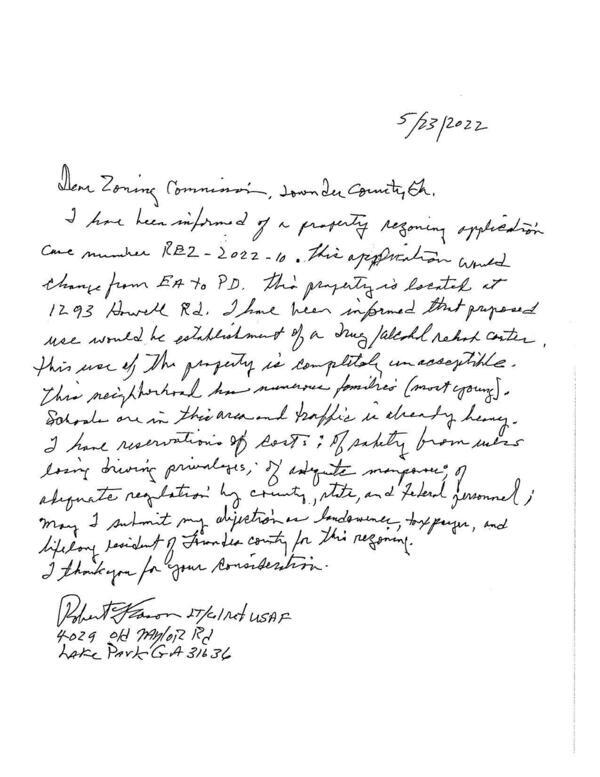 5/23/2022
Dear Zoning Commission, Lowndes County, Ga.
I have been informed of a property rezoning application
case number REZ-2022-10. This application would
change from EA to PD. This property is located at
1293 Howell Rd. I have been informed that proposed
use would be establishment of a drug/alcohol rehab center.
This use of the property is completely unacceptible.
This neighborhood has numerous families (most young).
Schools are in this area and traffic is already heavy.
I have reservations of cost; of safety from users
losing driving privaleges; of adequate manpower; of
adequate regulation by county, state, and Federal personnel;
May I submit my objection as landowner, taxpayer, and
lifelong resident of Lowndes county for this rezoning.
I thank you for your consideration.
Robert LT/Col Ret USAF
4029 Old Naylor Rd
Lake Park GA 31636